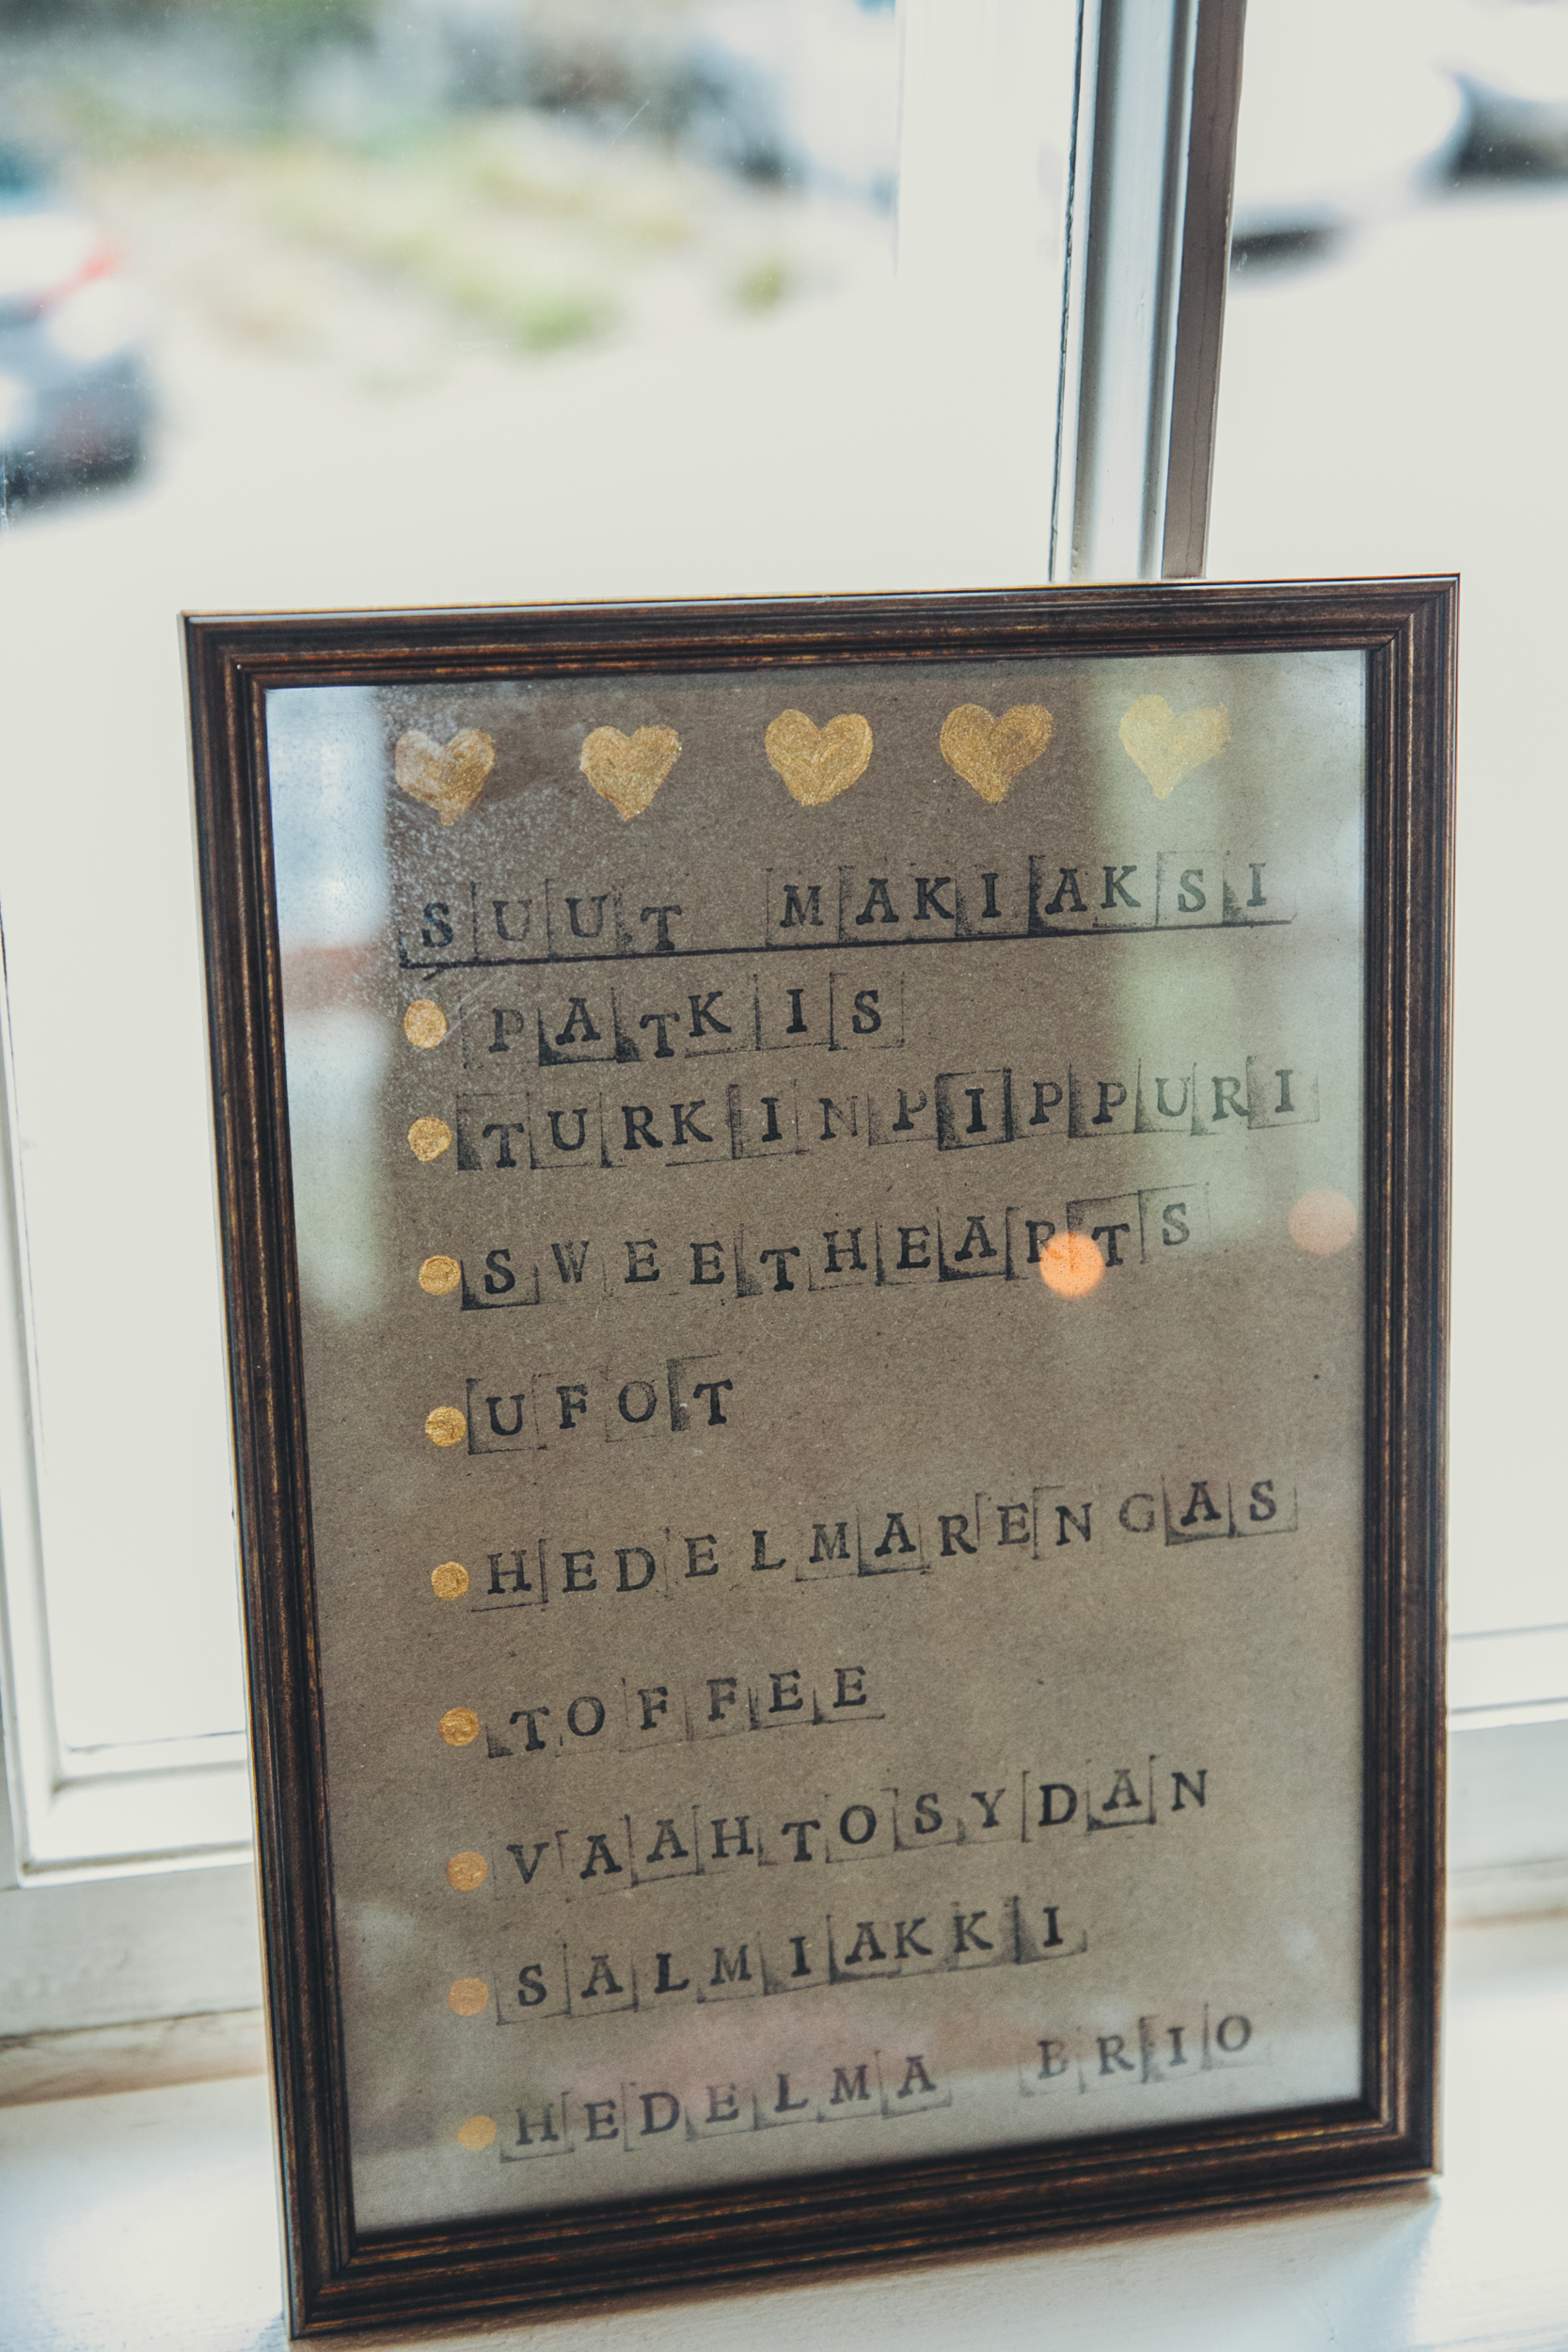 SUUT MAKIAKSI
PATKIS
TURKINPIPPURI
SWEETHEARTS
UFOT
HEDELMARENGAS
TOFFEE
VAAHTOSYDAN
SALMIAKKI
HEDELMA BRIO